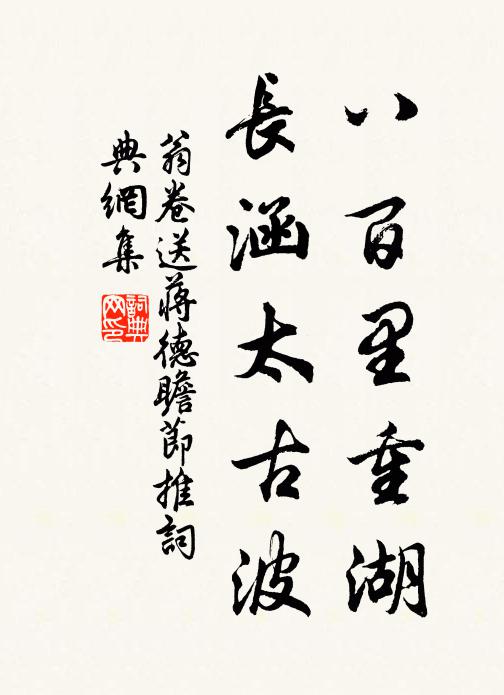 八百里重湖
長涵太古波
翁卷送蔣德瞻節推詞
典網集
詞典
网印